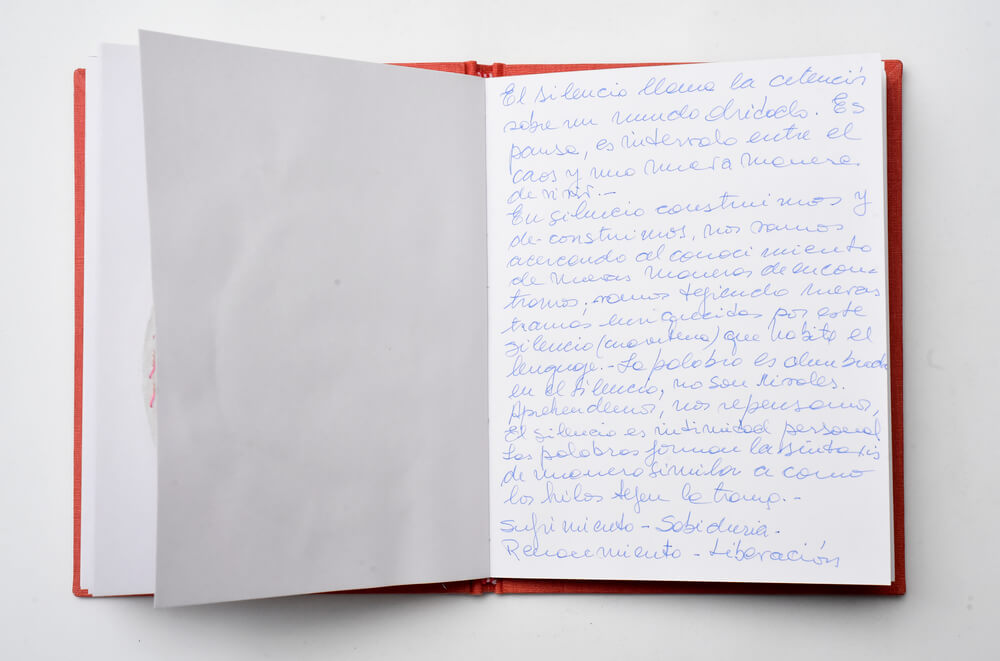 El silencio llama la atención
sobre un mundo olvidado. Es
pausa, es intervalo entre el
caos y una nueva manera
de vivir.-
En silencio construimos y
de-construimos, nos vamos
acercando al conocimiento
de nuevas maneras de encon-
trarnos; vamos tejiendo nuevas
tramas enriquecidas por este
silencio (cuarentena) que habita el
lenguaje.- La palabra es alumbrada
en el silencio, no son rivales.
Aprehendemos, nos repensamos,
El silencio es intimidad personal
Las palabras forman la sintaxis
de manera similar a como
los hilos tejen la trama.-
Sufrimiento - Sabiduria.
Renacimiento - Liberación